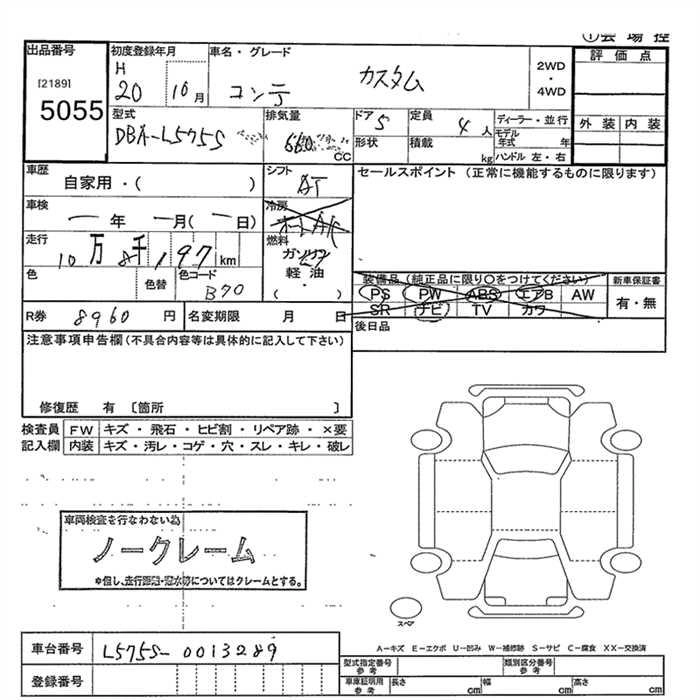 ①会場控
出品番号
[2189]
5055
初度登録年月
H 20 10月
車名・グレード
コンテ カスタム
2WD・4WD
評価点
外装 内装
型式
DBA-L575S
排気量
660 CC
ドア 5
形状
定員 4人
積載 kg
ディーラー・並行
モデル年式 年
ハンドル 左・右
車歴
自家用・( )
シフト
AT
セールスポイント (正常に機能するものに限ります)
車検
年 月( 日)
冷房
走行
10万8千197km
燃料
ガソリン
軽油
・
( )
色
色替
色コード
B70
装備品 (純正品に限り○をつけてください)
PS PW ABS エアB AW
SR ナビ TV カワ
新車保証書
有・無
R券 8960円
名変期限 月 日
後日品
注意事項申告欄(不具合内容等は具体的に記入して下さい)
修復歴 有 〔箇所 〕
検査員記入欄
FW キズ・飛石・ヒビ割・リペア跡・×要
内装 キズ・汚レ・コゲ・穴・スレ・キレ・破レ
車両検査を行なわない為
ノークレーム
*但し、走行距離・冠水等についてはクレームとする。
スペア
A-キズ E-エクボ U-凹み W-補修跡 S-サビ C-腐食 XX-交換済
車台番号 L575S-0013289
登録番号
型式指定番号 参考
類別区分番号 参考
車庫証明用 参考
長さ cm 幅 cm 高さ cm